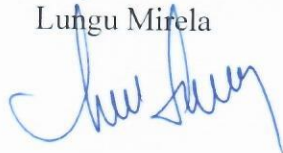 Lungu Mirela